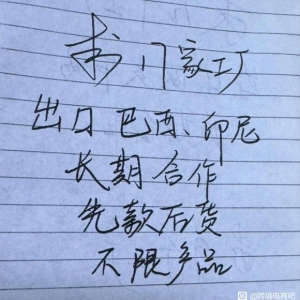 求17家工厂
出口巴西、印尼
长期合作
先款后货
不限产品
@跨境电商吧